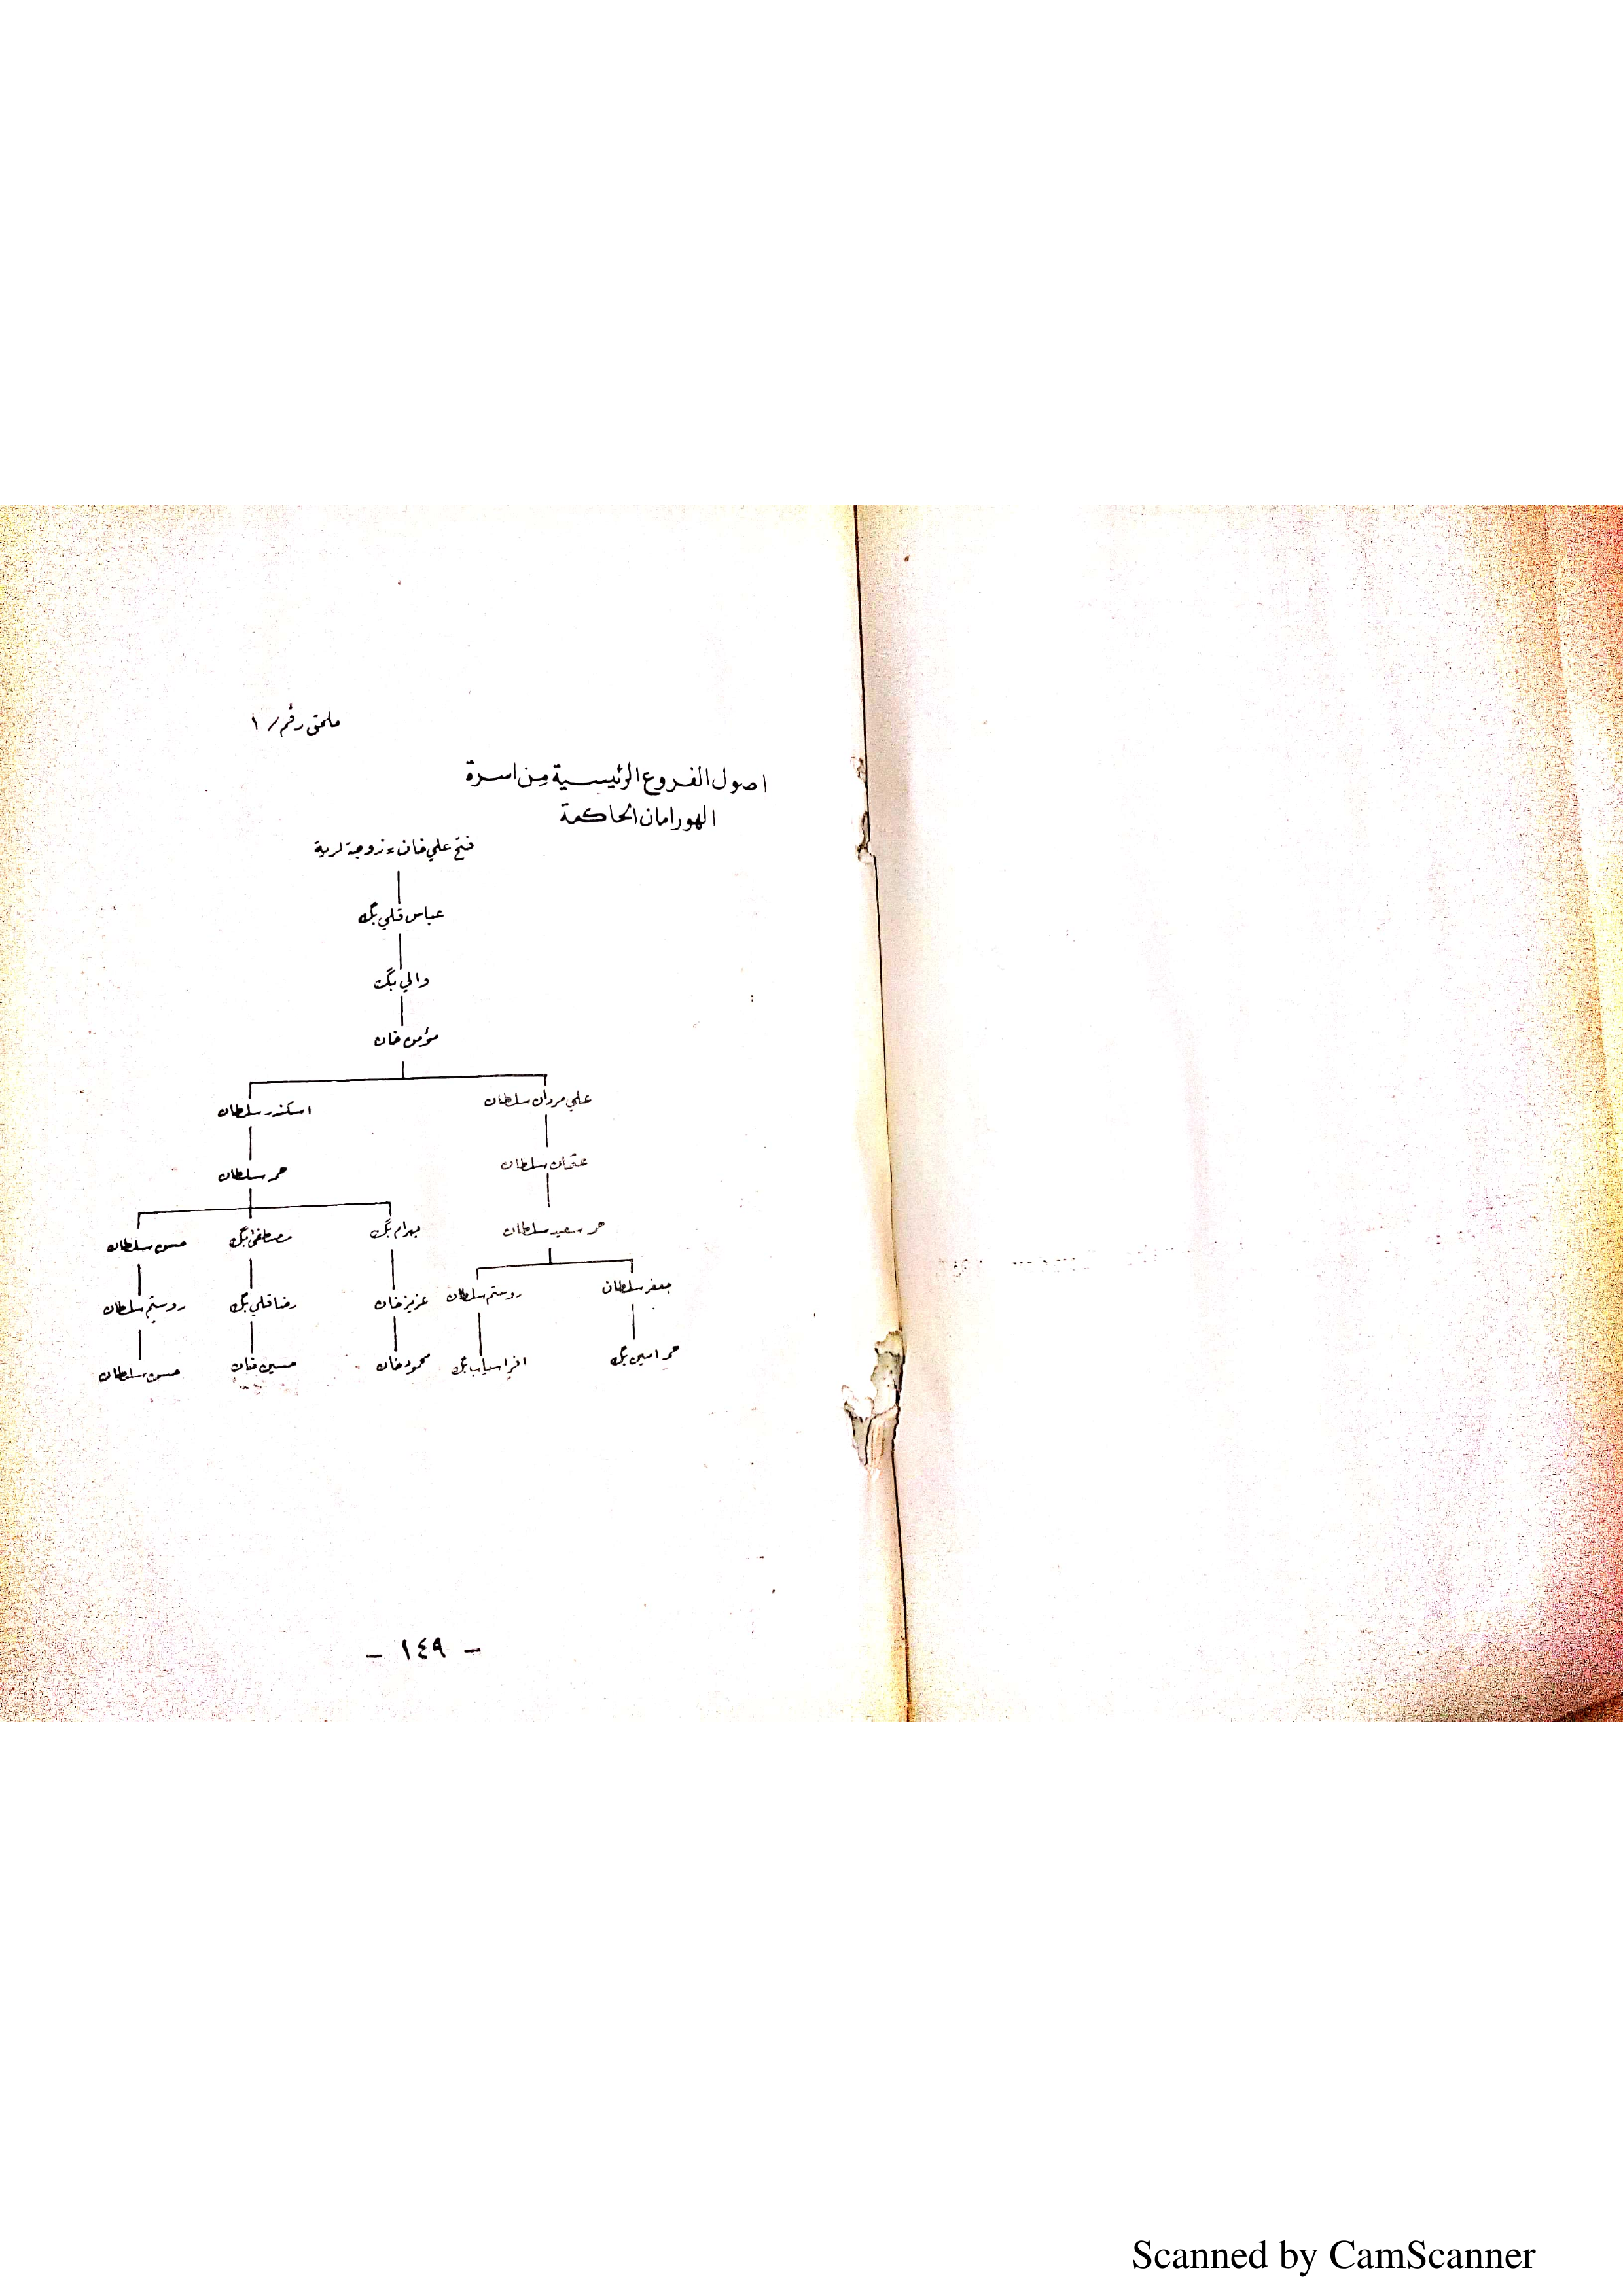 ملحق رقم / ١
اصول الفروع الرئيسية من اسرة
الهورامان الحاكمة
فتح علي خان ء زوجة لرية
عباس قلي بگ
والي بگ
مؤمن خان
علي مردان سلطان
اسكندر سلطان
عثمان سلطان
حمه سلطان
حمه سعيد سلطان
بهرام بگ
مصطفى بگ
حسن سلطان
جعفر سلطان
روستم سلطان
عزيز خان
رضا قلي بگ
روستم سلطان
حمه امين بگ
افراسياب بگ
محمود خان
حسين خان
حسن سلطان
- ١٤٩ -
Scanned by CamScanner